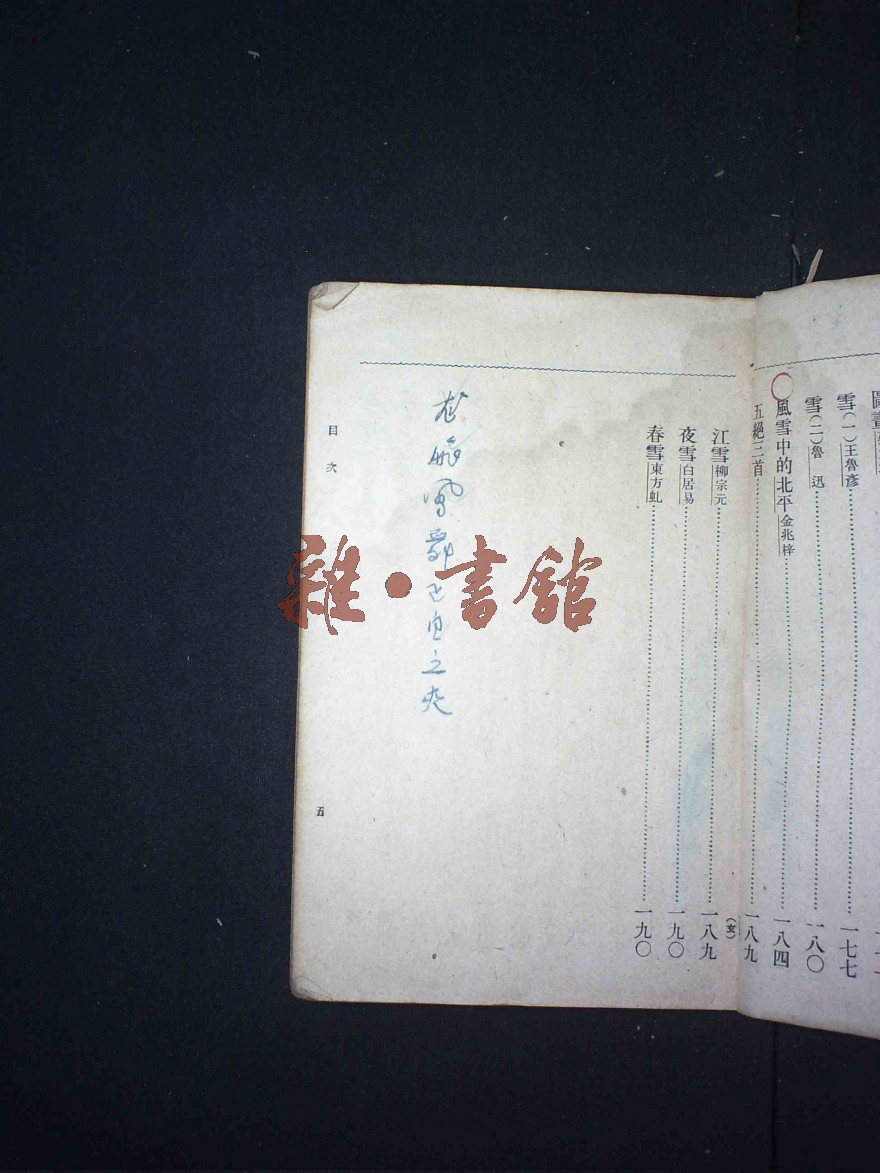 雪(一)王魯彥……一七七
雪(二)魯迅……一八〇
風雪中的北平金兆梓……一八四
五絕三首……一八九
江雪柳宗元……一八九
夜雪白居易……一九〇
春雪東方虬……一九〇
(玄)
鳳舞
自立
目次
五
雜·書館